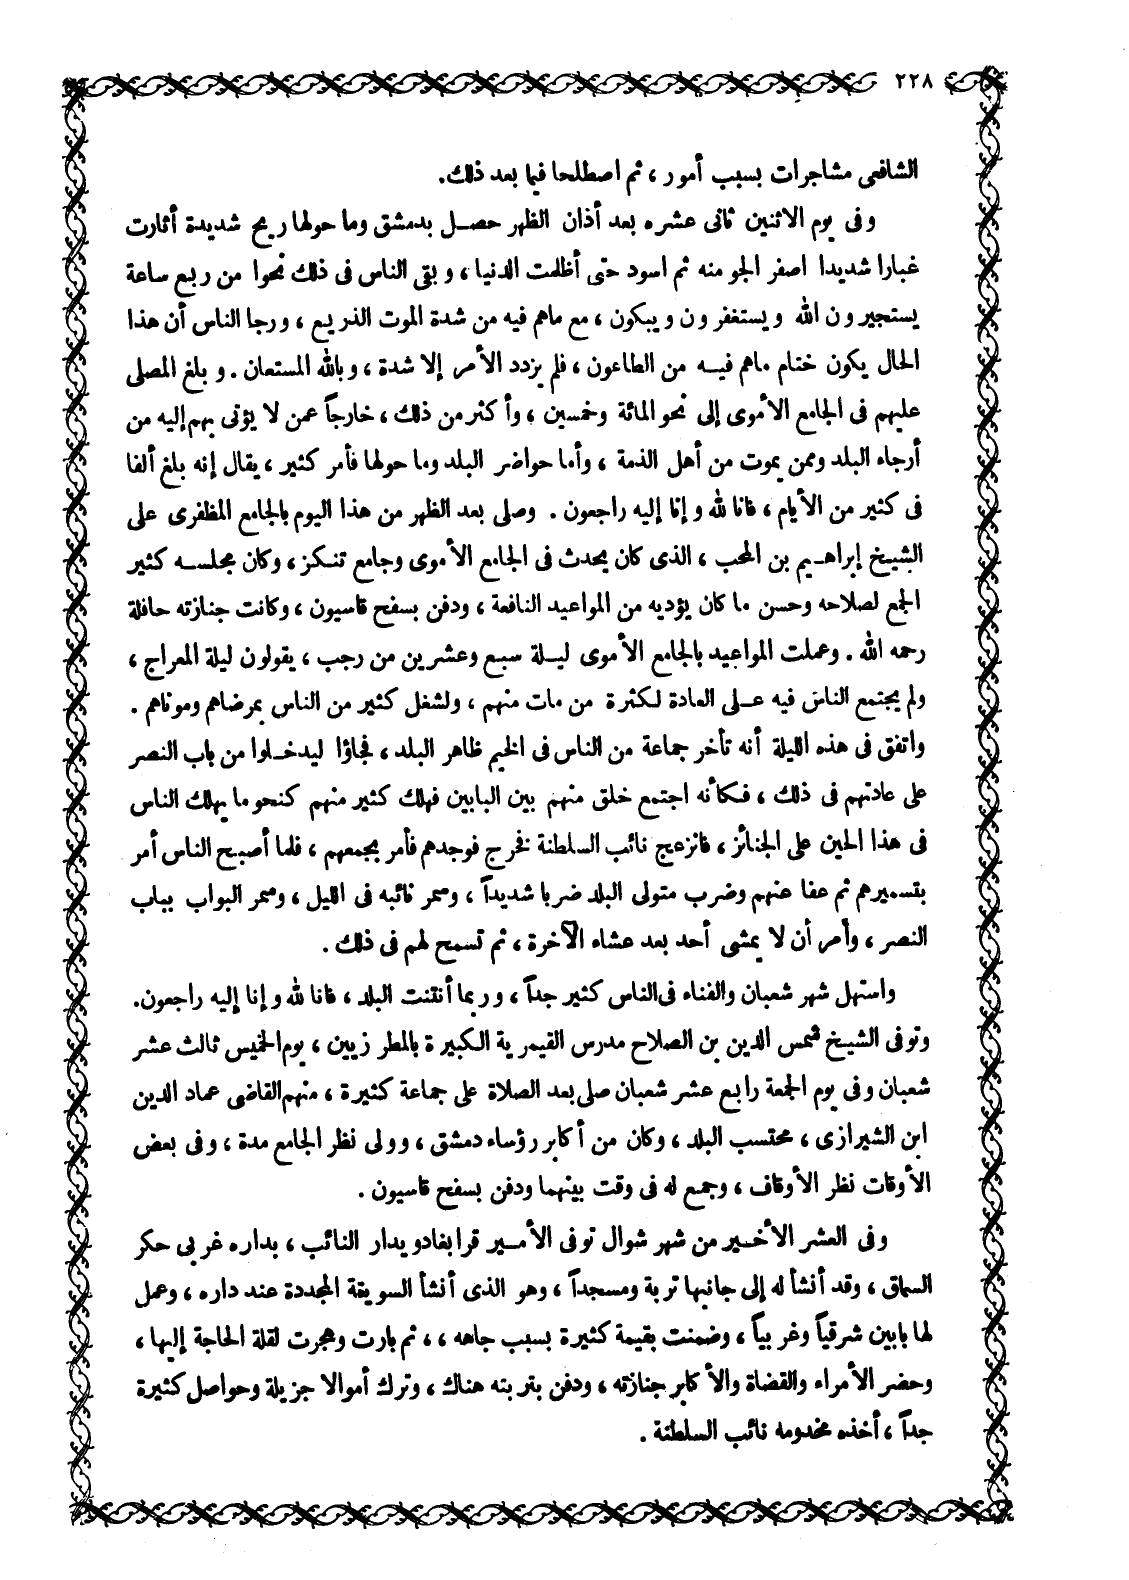 ٢٢٨
الشافعى مشاجرات بسبب أمور ، ثم اصطلحا فيما بعد ذلك.
وفى يوم الاثنين ثانى عشره بعد أذان الظهر حصل بدمشق وما حولها ريح شديدة أثارت
غبارا شديدا اصفر الجو منه ثم اسود حتى أظلمت الدنيا ، وبقى الناس فى ذلك نحوا من ربع ساعة
يستجيرون الله ويستغفرون ويبكون ، مع ماهم فيه من شدة الموت الذريع ، ورجا الناس أن هذا
الحال يكون ختام ماهم فيه من الطاعون ، فلم يزدد الأمر إلا شدة ، وبالله المستعان . وبلغ المصلى
عليهم فى الجامع الأموى إلى نحو المائة وخمسين ، وأكثر من ذلك ، خارجاً عمن لا يؤتى بهم إليه من
أرجاء البلد وممن يموت من أهل الذمة ، وأما حواضر البلد وما حولها فأمر كثير ، يقال إنه بلغ ألفا
فى كثير من الأيام ، فانا لله وإنا إليه راجعون . وصلى بعد الظهر من هذا اليوم بالجامع المظفرى على
الشيخ إبراهيم بن المحب ، الذى كان يحدث فى الجامع الأموى وجامع تنكز ، وكان مجلسه كثير
الجمع لصلاحه وحسن ما كان يؤديه من المواعيد النافعة ، ودفن بسفح قاسيون ، وكانت جنازته حافلة
رحمه الله . وعملت المواعيد بالجامع الأموى ليلة سبع وعشرين من رجب ، يقولون ليلة المعراج ،
ولم يجتمع الناس فيه على العادة لكثرة من مات منهم ، ولشغل كثير من الناس بمرضاهم وموتاهم .
واتفق فى هذه الليلة أنه تأخر جماعة من الناس فى الخيم ظاهر البلد ، فجاؤا ليدخلوا من باب النصر
على عادتهم فى ذلك ، فكأنه اجتمع خلق منهم بين البابين فهلك كثير منهم كنحو ما يهلك الناس
فى هذا الحين على الجنائز ، فانزعج نائب السلطنة فخرج فوجدهم فأمر بجمعهم ، فلما أصبح الناس أمر
بتسميرهم ثم عفا عنهم وضرب متولى البلد ضربا شديداً ، وسمر نائبه فى الليل ، وسمر البواب بباب
النصر ، وأمر أن لا يمشى أحد بعد عشاء الآخرة ، ثم تسمح لهم فى ذلك .
واستهل شهر شعبان والفناء فى الناس كثير جداً ، وربما أنتنت البلد ، فانا لله وإنا إليه راجعون.
وتوفى الشيخ شمس الدين بن الصلاح مدرس القيمرية الكبيرة بالمطرزيين ، يوم الخميس ثالث عشر
شعبان وفى يوم الجمعة رابع عشر شعبان صلى بعد الصلاة على جماعة كثيرة ، منهم القاضى عماد الدين
ابن الشيرازى ، محتسب البلد ، وكان من أكابر رؤساء دمشق ، وولى نظر الجامع مدة ، وفى بعض
الأوقات نظر الأوقاف ، وجمع له فى وقت بينهما ودفن بسفح قاسيون .
وفى العشر الأخير من شهر شوال توفى الأمير قرابغادويدار النائب ، بداره غربى حكر
السماق ، وقد أنشأ له إلى جانبها تربة ومسجداً ، وهو الذى أنشأ السويقة المجددة عند داره ، وعمل
لها بابين شرقياً وغربياً ، وضمنت بقيمة كثيرة بسبب جاهه ، ، ثم بارت وهجرت لقلة الحاجة إليها ،
وحضر الأمراء والقضاة والأكابر جنازته ، ودفن بتربته هناك ، وترك أموالا جزيلة وحواصل كثيرة
جداً ، أخذه مخدومه نائب السلطنة .